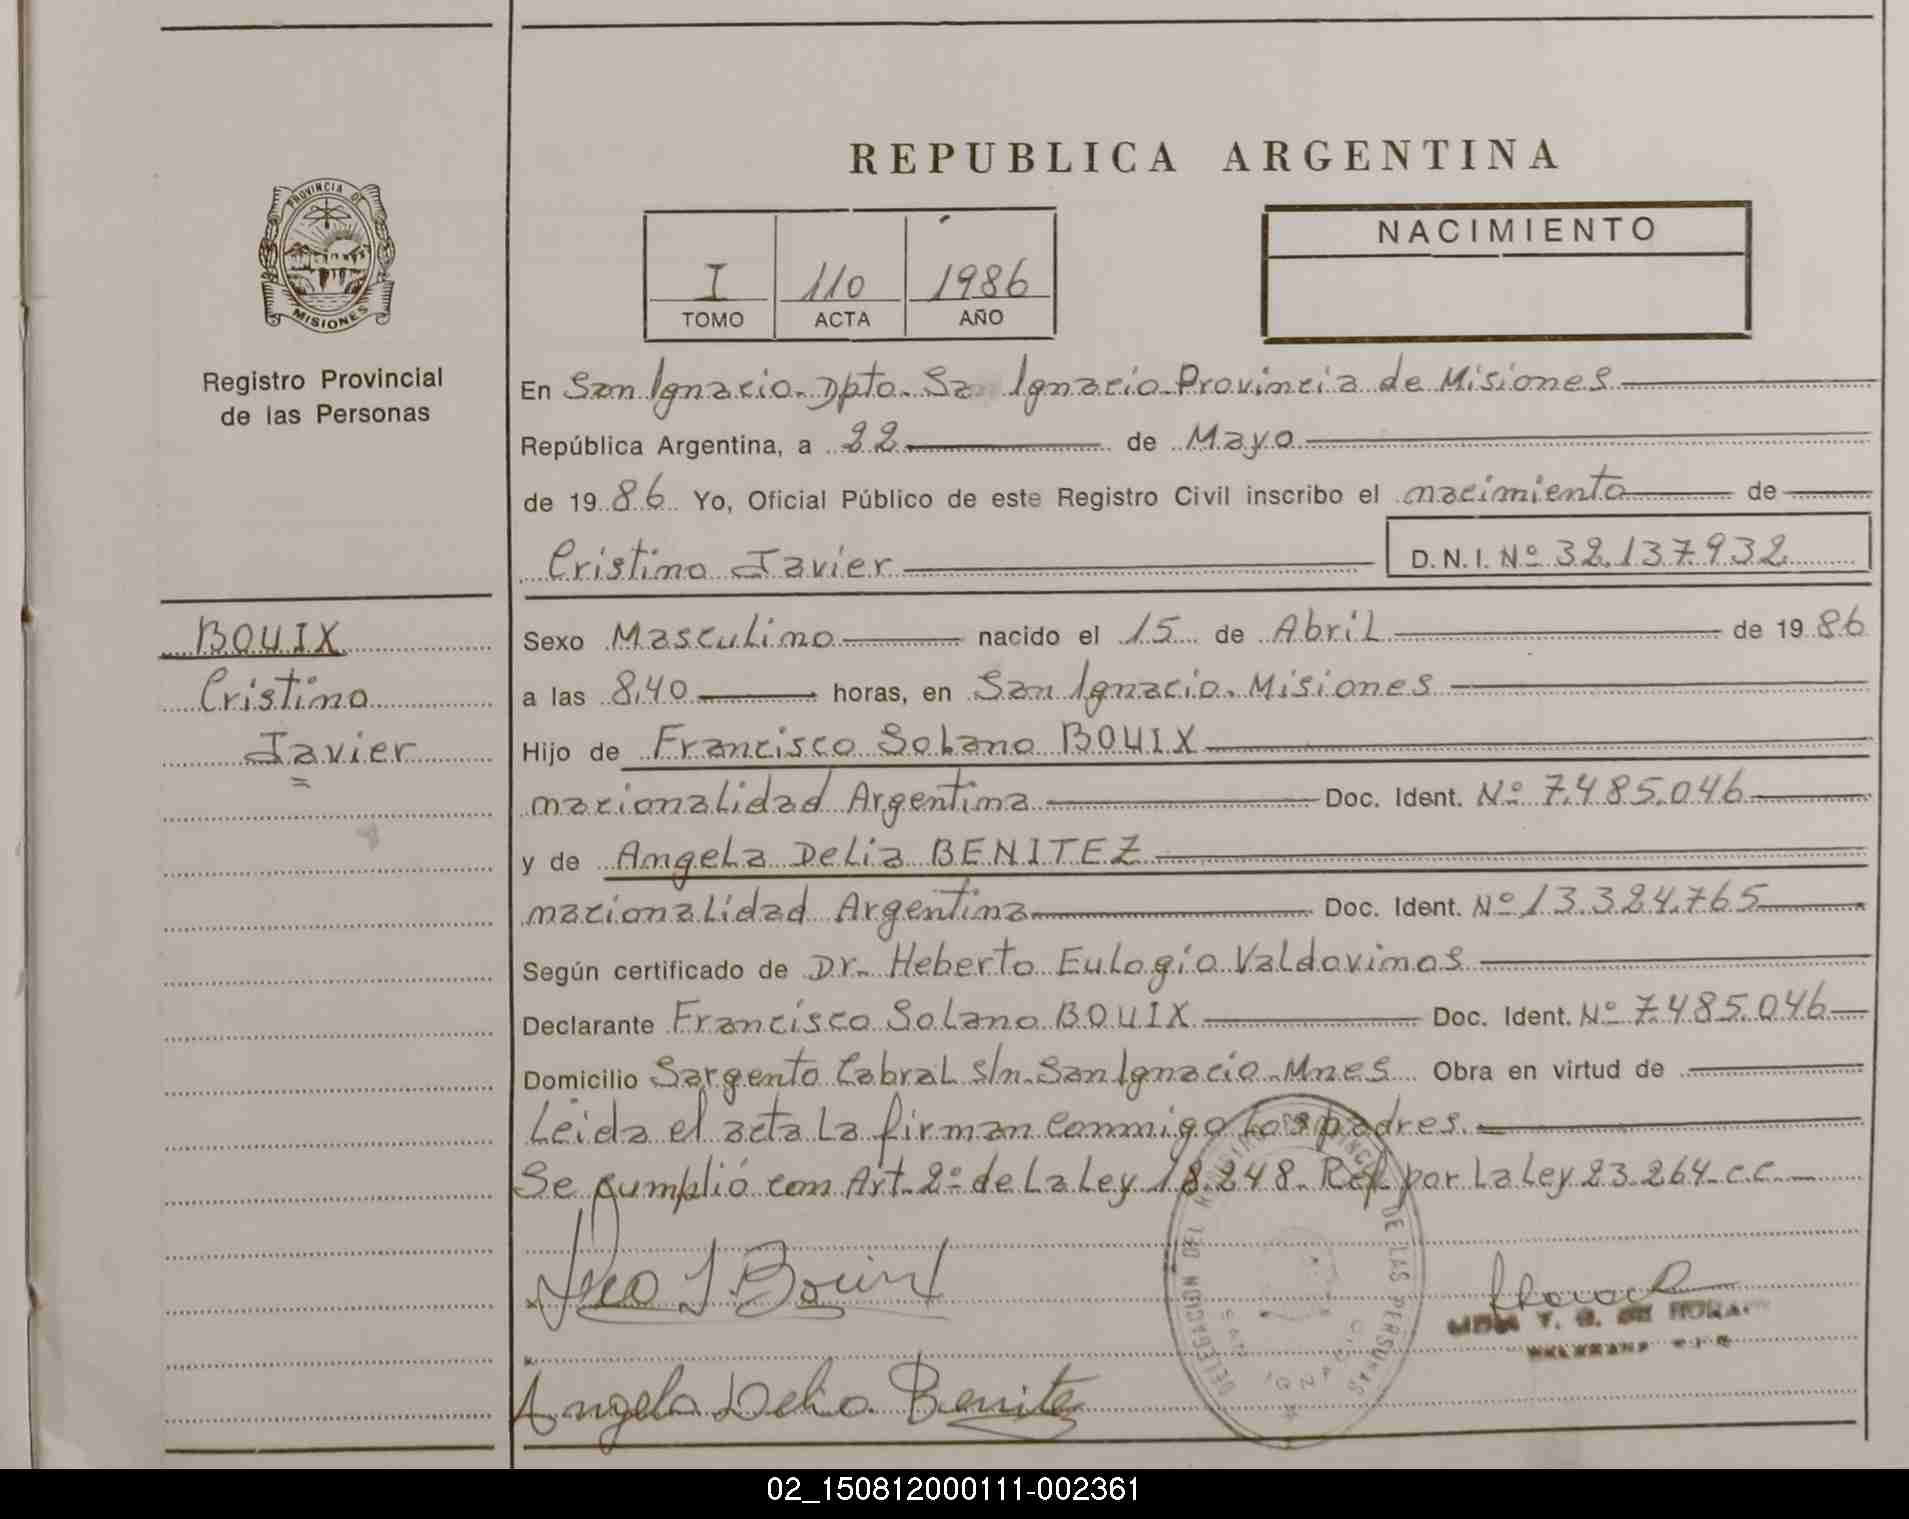 REPUBLICA ARGENTINA
PROVINCIA DE
MISIONES
Registro Provincial
de las Personas
I 110 1986
TOMO ACTA AÑO
NACIMIENTO
En San Ignacio. Dpto. San Ignacio Provincia de Misiones
República Argentina, a 22 de Mayo
de 1986 Yo, Oficial Público de este Registro Civil inscribo el nacimiento de
Cristino Javier D.N.I. Nº 32.137.932
BOUIX
Cristino
Javier
Sexo Masculino nacido el 15 de Abril de 1986
a las 8,40 horas, en San Ignacio. Misiones
Hijo de Francisco Solano BOUIX
nacionalidad Argentina Doc. Ident. Nº 7.485.046
y de Angela Delia BENITEZ
nacionalidad Argentina Doc. Ident. Nº 13.324.765
Según certificado de Dr. Heberto Eulogio Valdovinos
Declarante Francisco Solano BOUIX Doc. Ident. Nº 7.485.046
Domicilio Sargento Cabral s/n. San Ignacio. Mnes Obra en virtud de
Leida el acta la firman conmigo los padres.
Se cumplió con Art. 2º de la Ley 18.248. Ref. por la Ley 23.264. c.c.
DELEGACION DEL DE LAS PERSONAS
SAN IGNACIO
Angela Delia Benitez
02_150812000111-002361